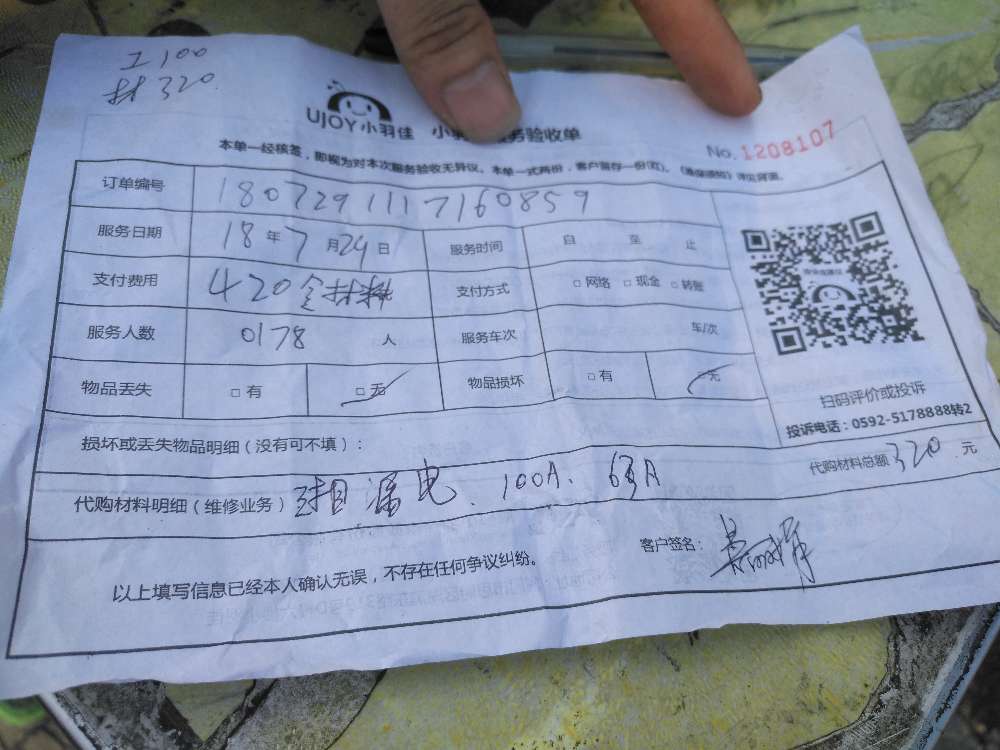 工 100
材 320
UJOY小羽佳 小 服务验收单
No. 1208107
本单一经核签，即视为对本次服务验收无异议。本单一式两份，客户留存一份(红)。《维保须知》详见背面。
订单编号 1807291117160859
服务日期 18 年 7 月 29 日 服务时间 自 至 止
支付费用 420 含材料 支付方式 □网络 □现金 □转账
服务人数 0178 人 服务车次 车/次
物品丢失 □有 □无 物品损坏 □有 无
扫码评价或投诉
投诉电话：0592-5178888转2
损坏或丢失物品明细（没有可不填）：
代购材料明细（维修业务） 漏电、100A、63A 代购材料总额 320 元
以上填写信息已经本人确认无误，不存在任何争议纠纷。 客户签名：